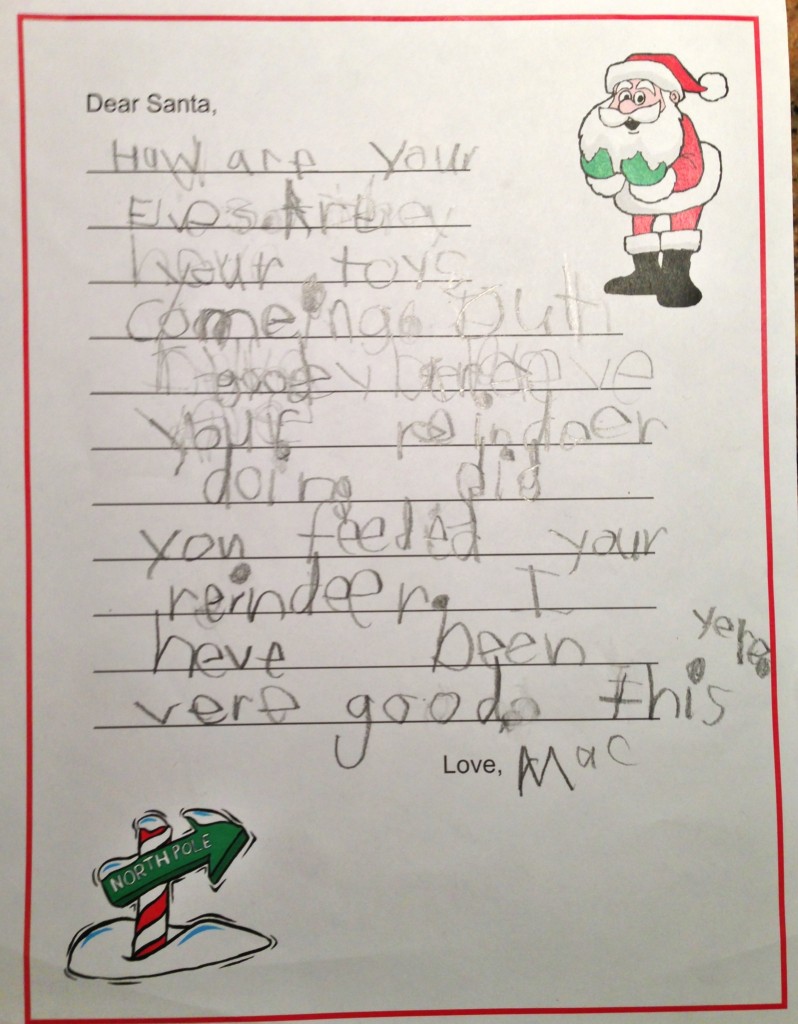 Dear Santa,
How are your
Elves Are
your toys
comeing out
good
your reindeer
doing did
you feeded your
reindeer. I
heve been
vere good. this
yere.
Love, Mac
NORTH POLE